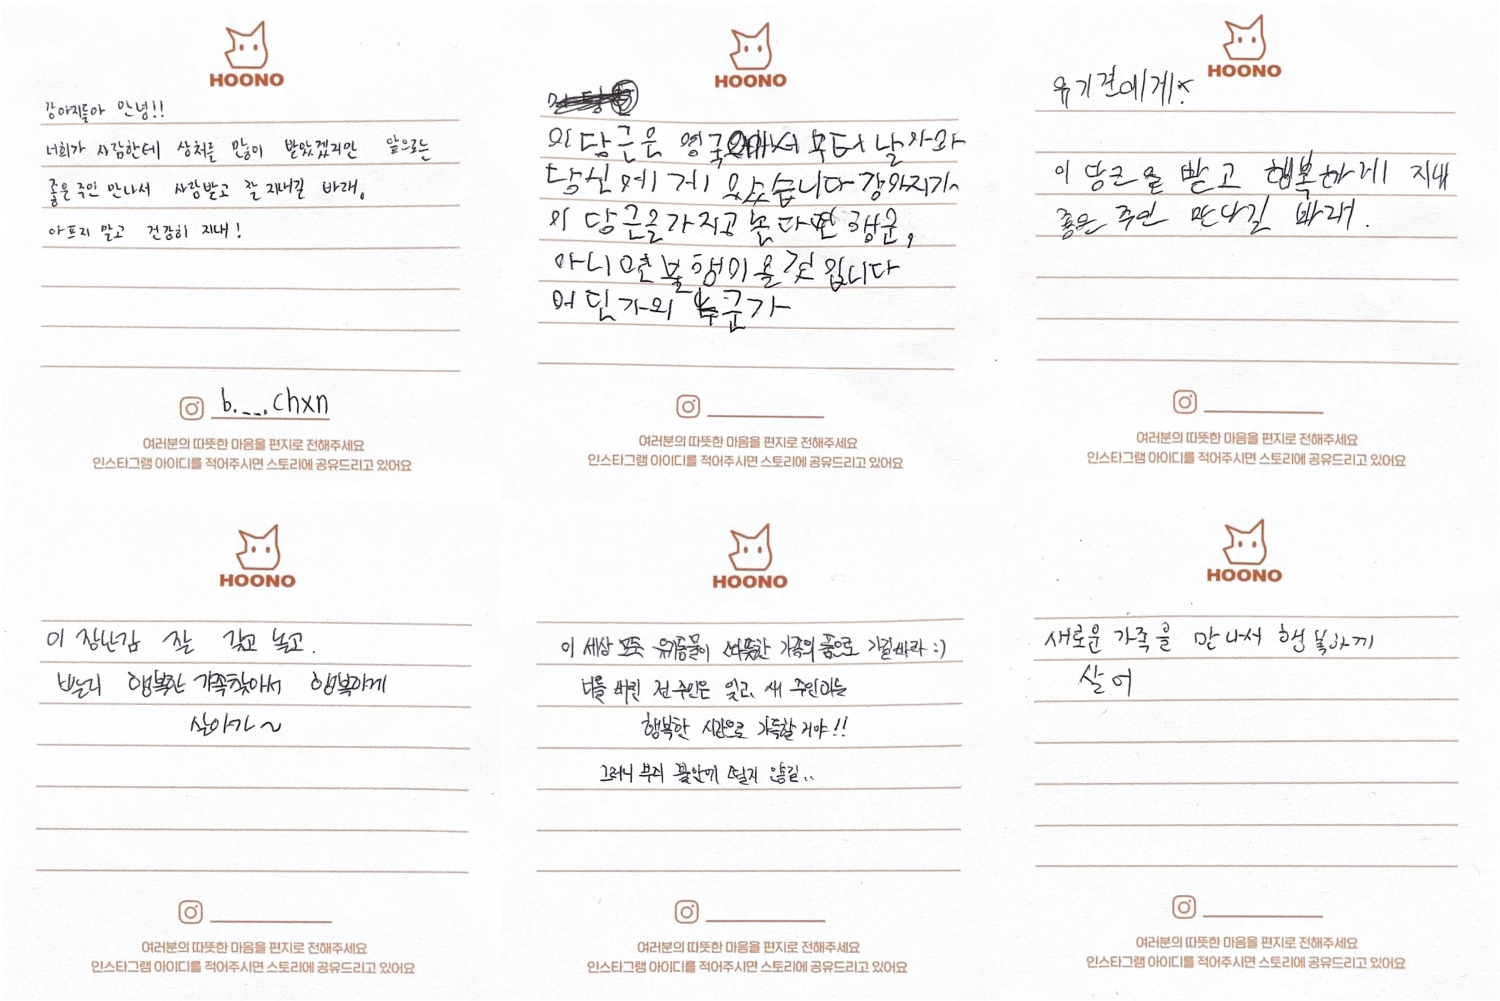 HOONO
강아지들아 안녕!!
너희가 사람한테 상처를 많이 받았겠지만 앞으로는
좋은 주인 만나서 사랑받고 잘 지내길 바래.
아프지 말고 건강히 지내!
b.__.chxn
여러분의 따뜻한 마음을 편지로 전해주세요
인스타그램 아이디를 적어주시면 스토리에 공유드리고 있어요
HOONO
이 당근은 영국에서부터 날라와
당신에게 있습니다 강아지가
이 당근을 가지고 논다면 행운,
아니면 불행이 올 것입니다
어딘가의 누군가
여러분의 따뜻한 마음을 편지로 전해주세요
인스타그램 아이디를 적어주시면 스토리에 공유드리고 있어요
HOONO
유기견에게
이 당근을 받고 행복하게 지내
좋은 주인 만나길 바래.
여러분의 따뜻한 마음을 편지로 전해주세요
인스타그램 아이디를 적어주시면 스토리에 공유드리고 있어요
HOONO
이 장난감 잘 갖고 놀고.
빨리 행복한 가족찾아서 행복하게
살아가~
여러분의 따뜻한 마음을 편지로 전해주세요
인스타그램 아이디를 적어주시면 스토리에 공유드리고 있어요
HOONO
이 세상 모든 유기동물이 따뜻한 가족의 품으로 가길바라 :)
너를 버린 전 주인은 잊고, 새 주인과는
행복한 시간으로 가득할거야!!
그러니 부디 불안에 떨지 않길..
여러분의 따뜻한 마음을 편지로 전해주세요
인스타그램 아이디를 적어주시면 스토리에 공유드리고 있어요
HOONO
새로운 가족을 만나서 행복하게
살어
여러분의 따뜻한 마음을 편지로 전해주세요
인스타그램 아이디를 적어주시면 스토리에 공유드리고 있어요